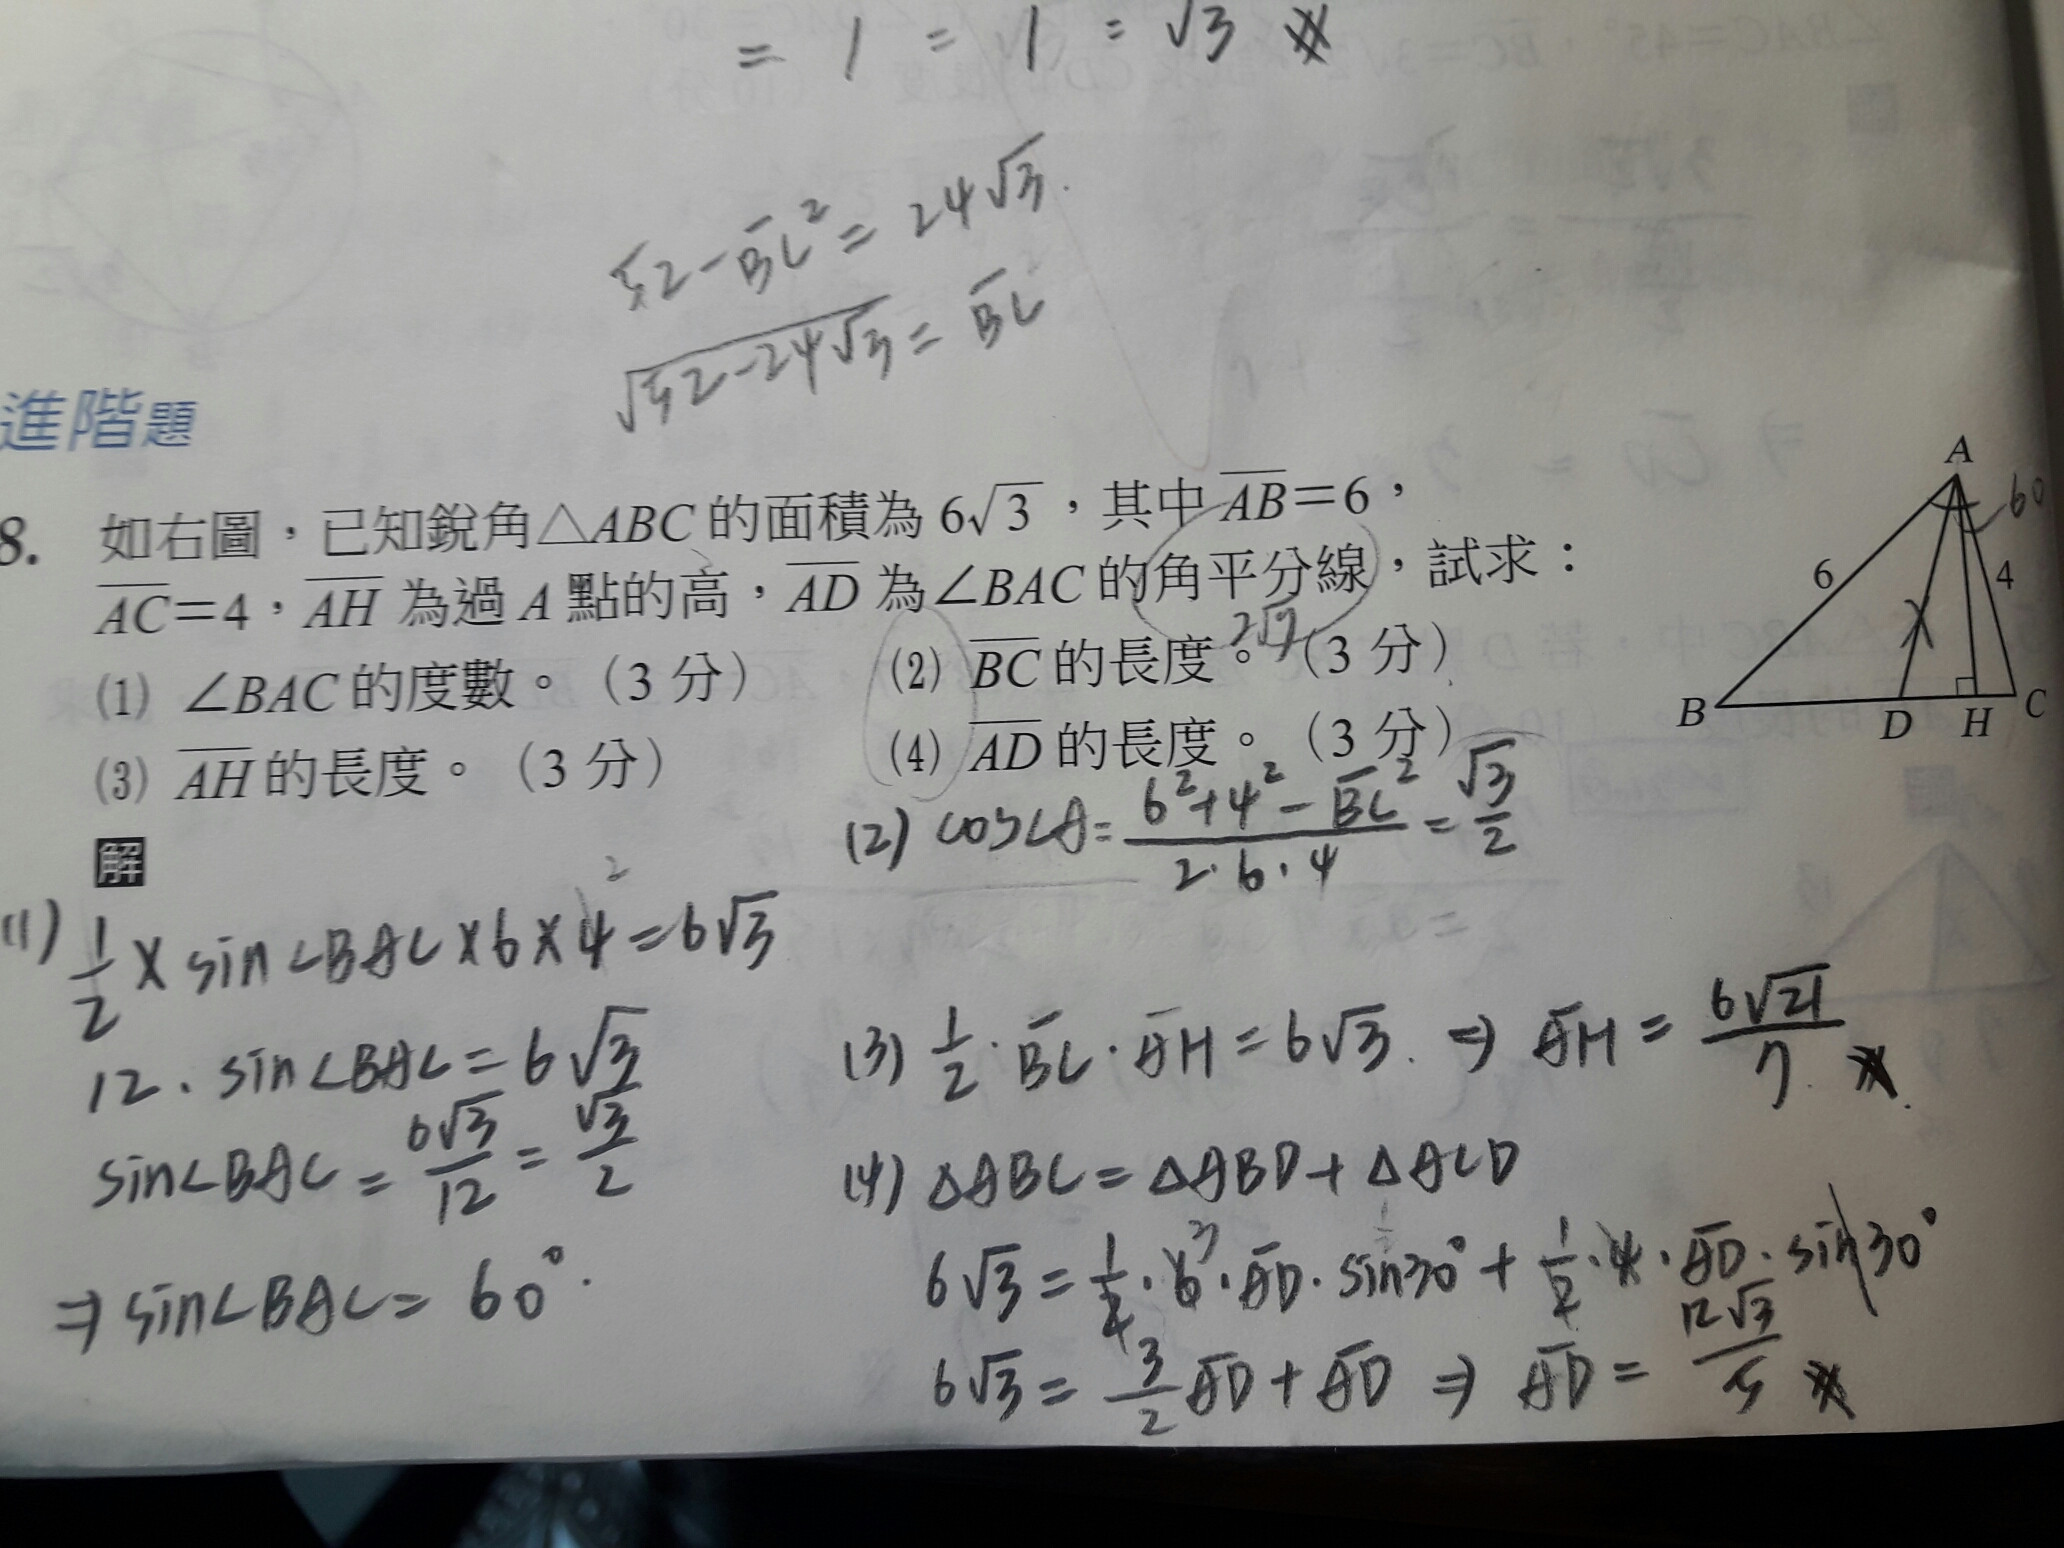 = 1 = 1 : √3 ※
52-BC²=24√3.
√52-24√3 = BC
進階題
8. 如右圖，已知銳角△ABC的面積為 6√3，其中AB=6，
AC=4，AH 為過A點的高，AD 為∠BAC的角平分線，試求：
2√7
(1) ∠BAC的度數。（3分） (2) BC的長度。（3分）
(3) AH的長度。（3分） (4) AD的長度。（3分）
A
60
6
4
B
D
H
C
解
(2) cos∠A= 6²+4²-BC² / 2·6·4 = √3/2
(1) 1/2 × sin∠BAC×6×4=6√3
2
12·sin∠BAC=6√3
sin∠BAC = 6√3/12 = √3/2
⇒ sin∠BAC = 60°.
(3) 1/2·BC·AH=6√3. ⇒ AH = 6√21/7 ※
(4) △ABC=△ABD+△ACD
6√3 = 1/2·6·AD·sin30°+1/2·4·AD·sin30°
6√3 = 3/2 AD + AD ⇒ AD = 12√3/5 ※